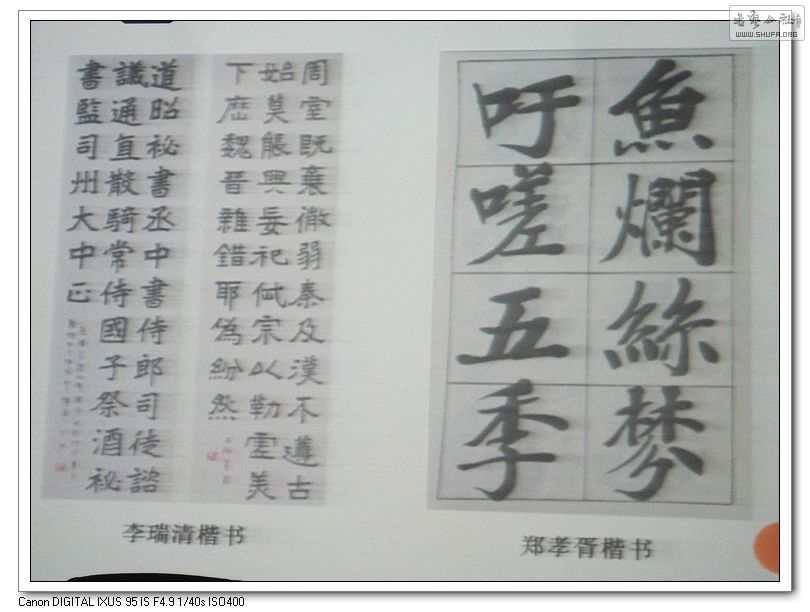 书法公社
WWW.SHUFA.ORG
魚爛絲棼
吁嗟五季
周室既衰微弱秦及漢不遵古
始莫能興妄祀岱宗以勒虛美
下歷魏晉雜錯耶為紛然
道昭祕書丞中書侍郎司徒諮
議通直散騎常侍國子祭酒祕
書監司州大中正
李瑞清楷书
郑孝胥楷书
Canon DIGITAL IXUS 95 IS F4.9 1/40s ISO400